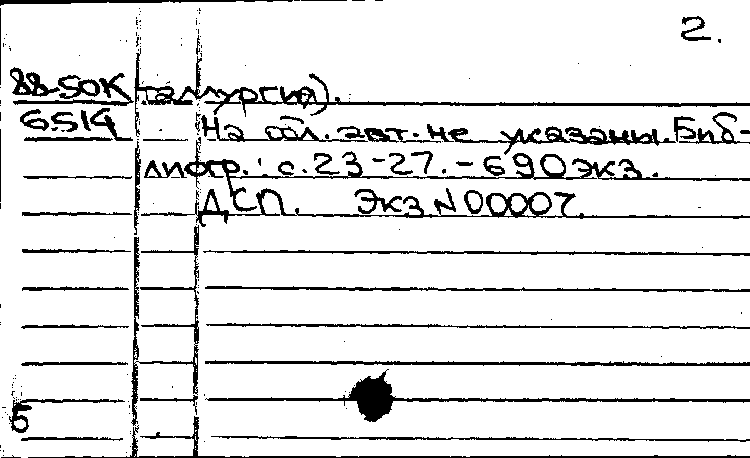 2.
88-50К таллургия).
6514 На обл. авт. не указаны. Биб-
лиогр.: с. 23-27. - 690 экз.
ДСП. Экз N 00007.
Б